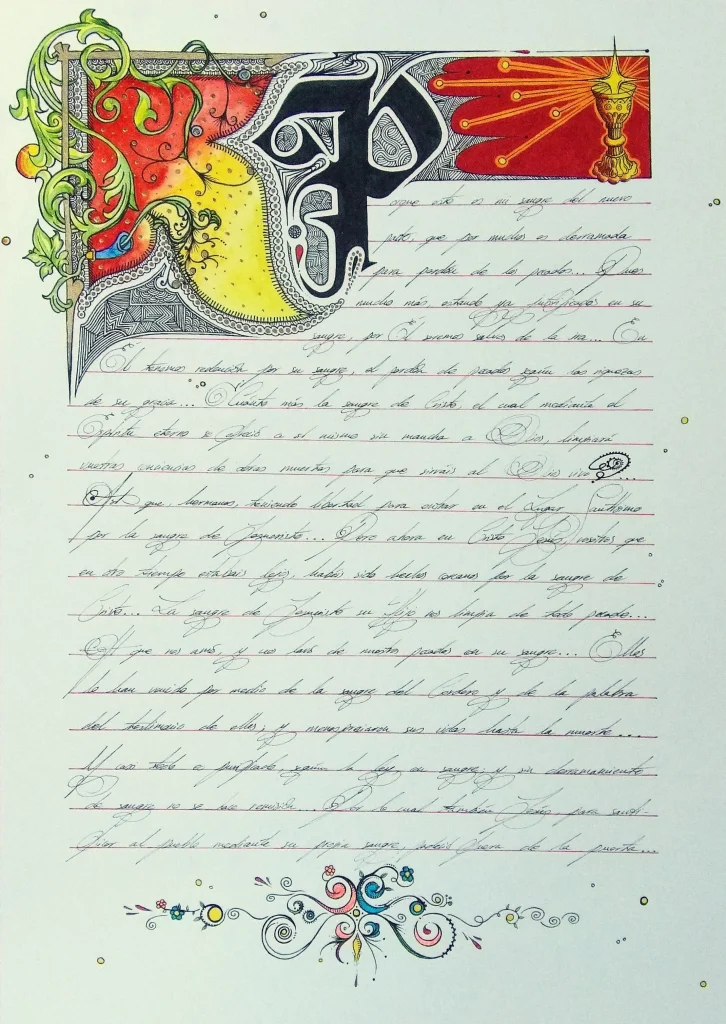 Porque esto es mi sangre del nuevo
pacto, que por muchos es derramada
para perdón de los pecados... Pues
mucho más estando ya justificados en su
sangre, por Él seremos salvos de la ira... En
Él tenemos redención por su sangre, el perdón de pecados según las riquezas
de su gracia... Cuánto más la sangre de Cristo, el cual mediante el
Espíritu eterno se ofreció a sí mismo sin mancha a Dios, limpiará
vuestras conciencias de obras muertas para que sirváis al Dios vivo...
Así que, hermanos, teniendo libertad para entrar en el Lugar Santísimo
por la sangre de Jesucristo... Pero ahora en Cristo Jesús, vosotros que
en otro tiempo estabais lejos, habéis sido hechos cercanos por la sangre de
Cristo... La sangre de Jesucristo su Hijo nos limpia de todo pecado...
Al que nos amó, y nos lavó de nuestros pecados en su sangre... Ellos
lo han vencido por medio de la sangre del Cordero y de la palabra
del testimonio de ellos; y menospreciaron sus vidas hasta la muerte...
Y casi todo es purificado, según la ley, en sangre; y sin derramamiento
de sangre no se hace remisión... Por lo cual también Jesús, para santi-
ficar al pueblo mediante su propia sangre, padeció fuera de la puerta...